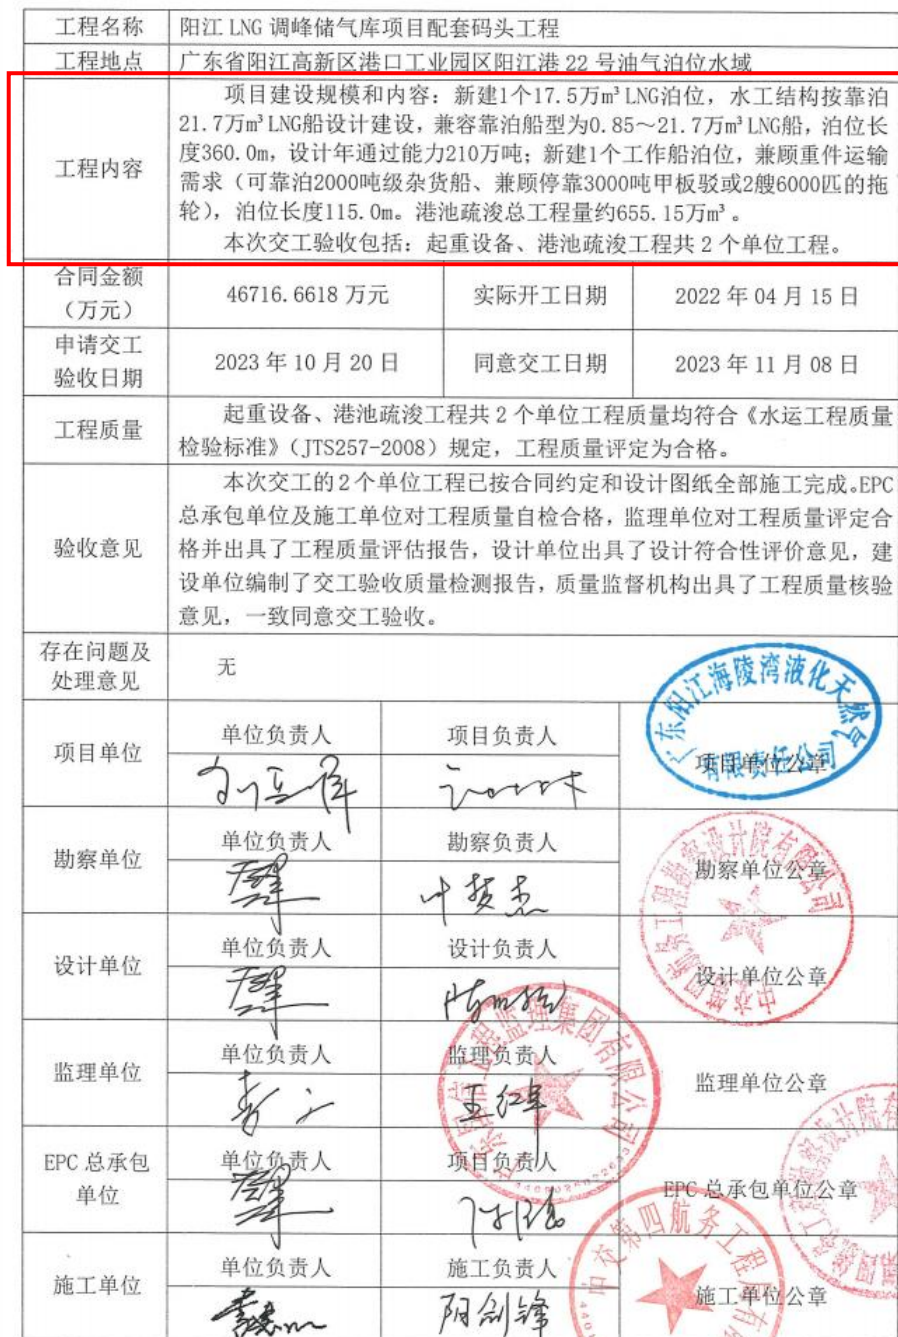 工程名称 阳江 LNG 调峰储气库项目配套码头工程
工程地点 广东省阳江高新区港口工业园区阳江港 22 号油气泊位水域
工程内容
项目建设规模和内容：新建1个17.5万m³LNG泊位，水工结构按靠泊
21.7万m³LNG船设计建设，兼容靠泊船型为0.85～21.7万m³LNG船，泊位长
度360.0m，设计年通过能力210万吨；新建1个工作船泊位，兼顾重件运输
需求（可靠泊2000吨级杂货船、兼顾停靠3000吨甲板驳或2艘6000匹的拖
轮），泊位长度115.0m。港池疏浚总工程量约655.15万m³。
本次交工验收包括：起重设备、港池疏浚工程共 2 个单位工程。
合同金额
（万元）
46716.6618 万元 实际开工日期 2022 年 04 月 15 日
申请交工
验收日期
2023 年 10 月 20 日 同意交工日期 2023 年 11 月 08 日
工程质量
起重设备、港池疏浚工程共 2 个单位工程质量均符合《水运工程质量
检验标准》（JTS257-2008）规定，工程质量评定为合格。
验收意见
本次交工的 2 个单位工程已按合同约定和设计图纸全部施工完成。EPC
总承包单位及施工单位对工程质量自检合格，监理单位对工程质量评定合
格并出具了工程质量评估报告，设计单位出具了设计符合性评价意见，建
设单位编制了交工验收质量检测报告，质量监督机构出具了工程质量核验
意见，一致同意交工验收。
存在问题及
处理意见
无
项目单位 单位负责人 项目负责人 项目单位公章
广东阳江海陵湾液化天然气
有限责任公司
勘察单位 单位负责人 勘察负责人 勘察单位公章
叶荻杰
设计单位 单位负责人 设计负责人 设计单位公章
监理单位 单位负责人 监理负责人 监理单位公章
王红军
EPC 总承包
单位
单位负责人 项目负责人 EPC 总承包单位公章
施工单位 单位负责人 施工负责人 施工单位公章
阳剑锋
中交第四航务工程局有